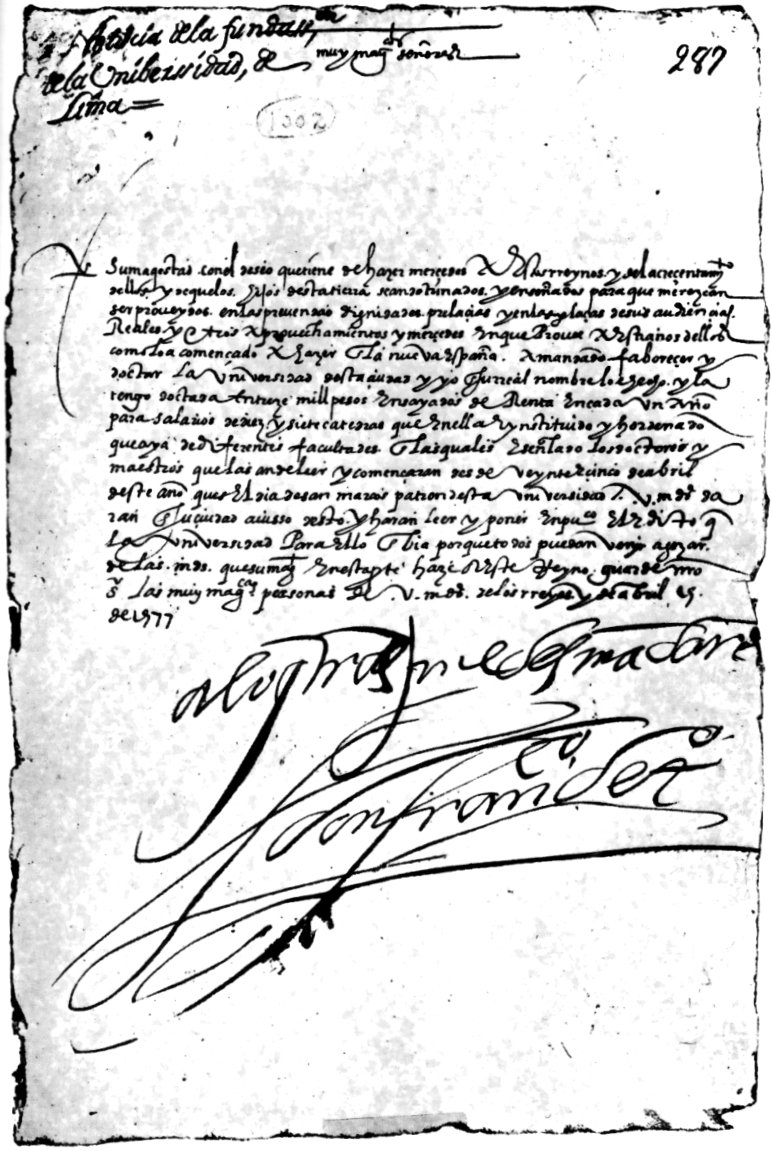 Notiçia de la fundass.on
de la Uniberssidad, de
Lima =
muy mag.cos señores
287
1302
Su magestad con el deseo que tiene de hazer merçedes A Estos rreynos. y del acrecentami.to
dellos. y de que los. hijos desta tierra sean dotrinados. y enseñados para que merezcan
ser proveydos. en las prevendas dignidades. prelaçias y en las plaças de sus audiençias.
Reales. y otros Aprovechamientos y merçedes En que A los dellos
como lo a començado A hazer En la nueva España. A mandado faboreçer y
doctar La Universidad desta çiudad y yo En su rreal nombre lo e hecho. y la
tengo doctada En treze mill pesos Ensayados de Renta En cada Un Año
para salarios de diez y siete catedras que En ella E ynstituido y hordenado
que aya de diferentes facultades. En las quales E señalado los doctores y
maestros que las an de leer y començaran desde veynte e çinco de abril
deste año ques El dia de san marcos patron desta Universidad. V. mds. da
ran En su çiudad aviso desto. y haran leer y poner En pu.co El Edito q
La Universidad Para Ello Enbia porque todos puedan venir a gozar.
de las. mds. que su mag. En esta p.te haze A Este Reyno. guarde nro
s.r las muy mag.cas personas de. V. mds. de los rreyes y de abril 15.
de 1577
a lo que vras mdes mandaren
don fran.co de t.o